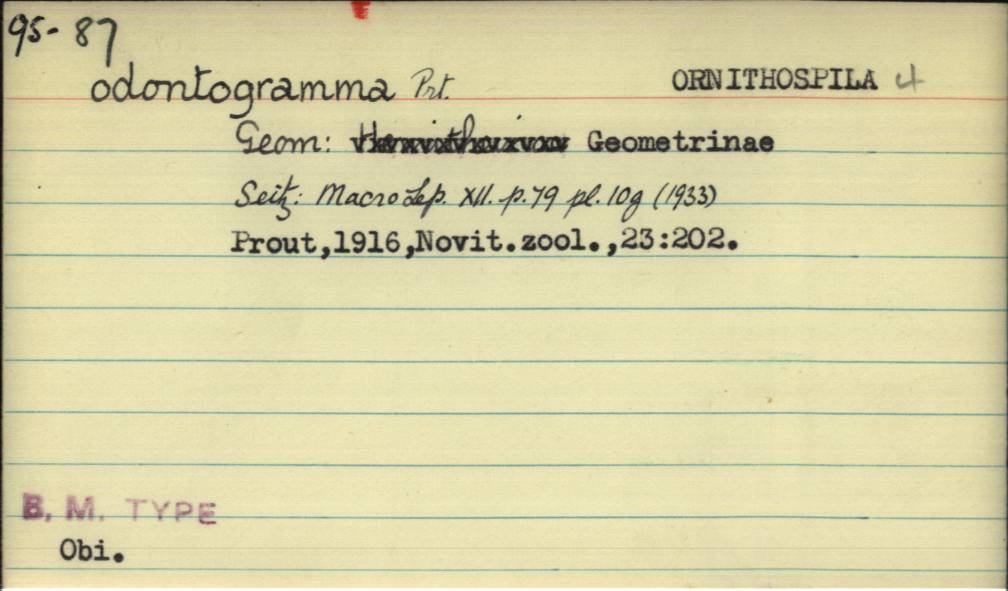 95- 87
odontogramma Prt. ORNITHOSPILA 4
Geom: Geometrinae
Seitz: Macro Lep. XII. p.79 pl.10g (1933)
Prout,1916,Novit.zool.,23:202.
B. M. TYPE
Obi.